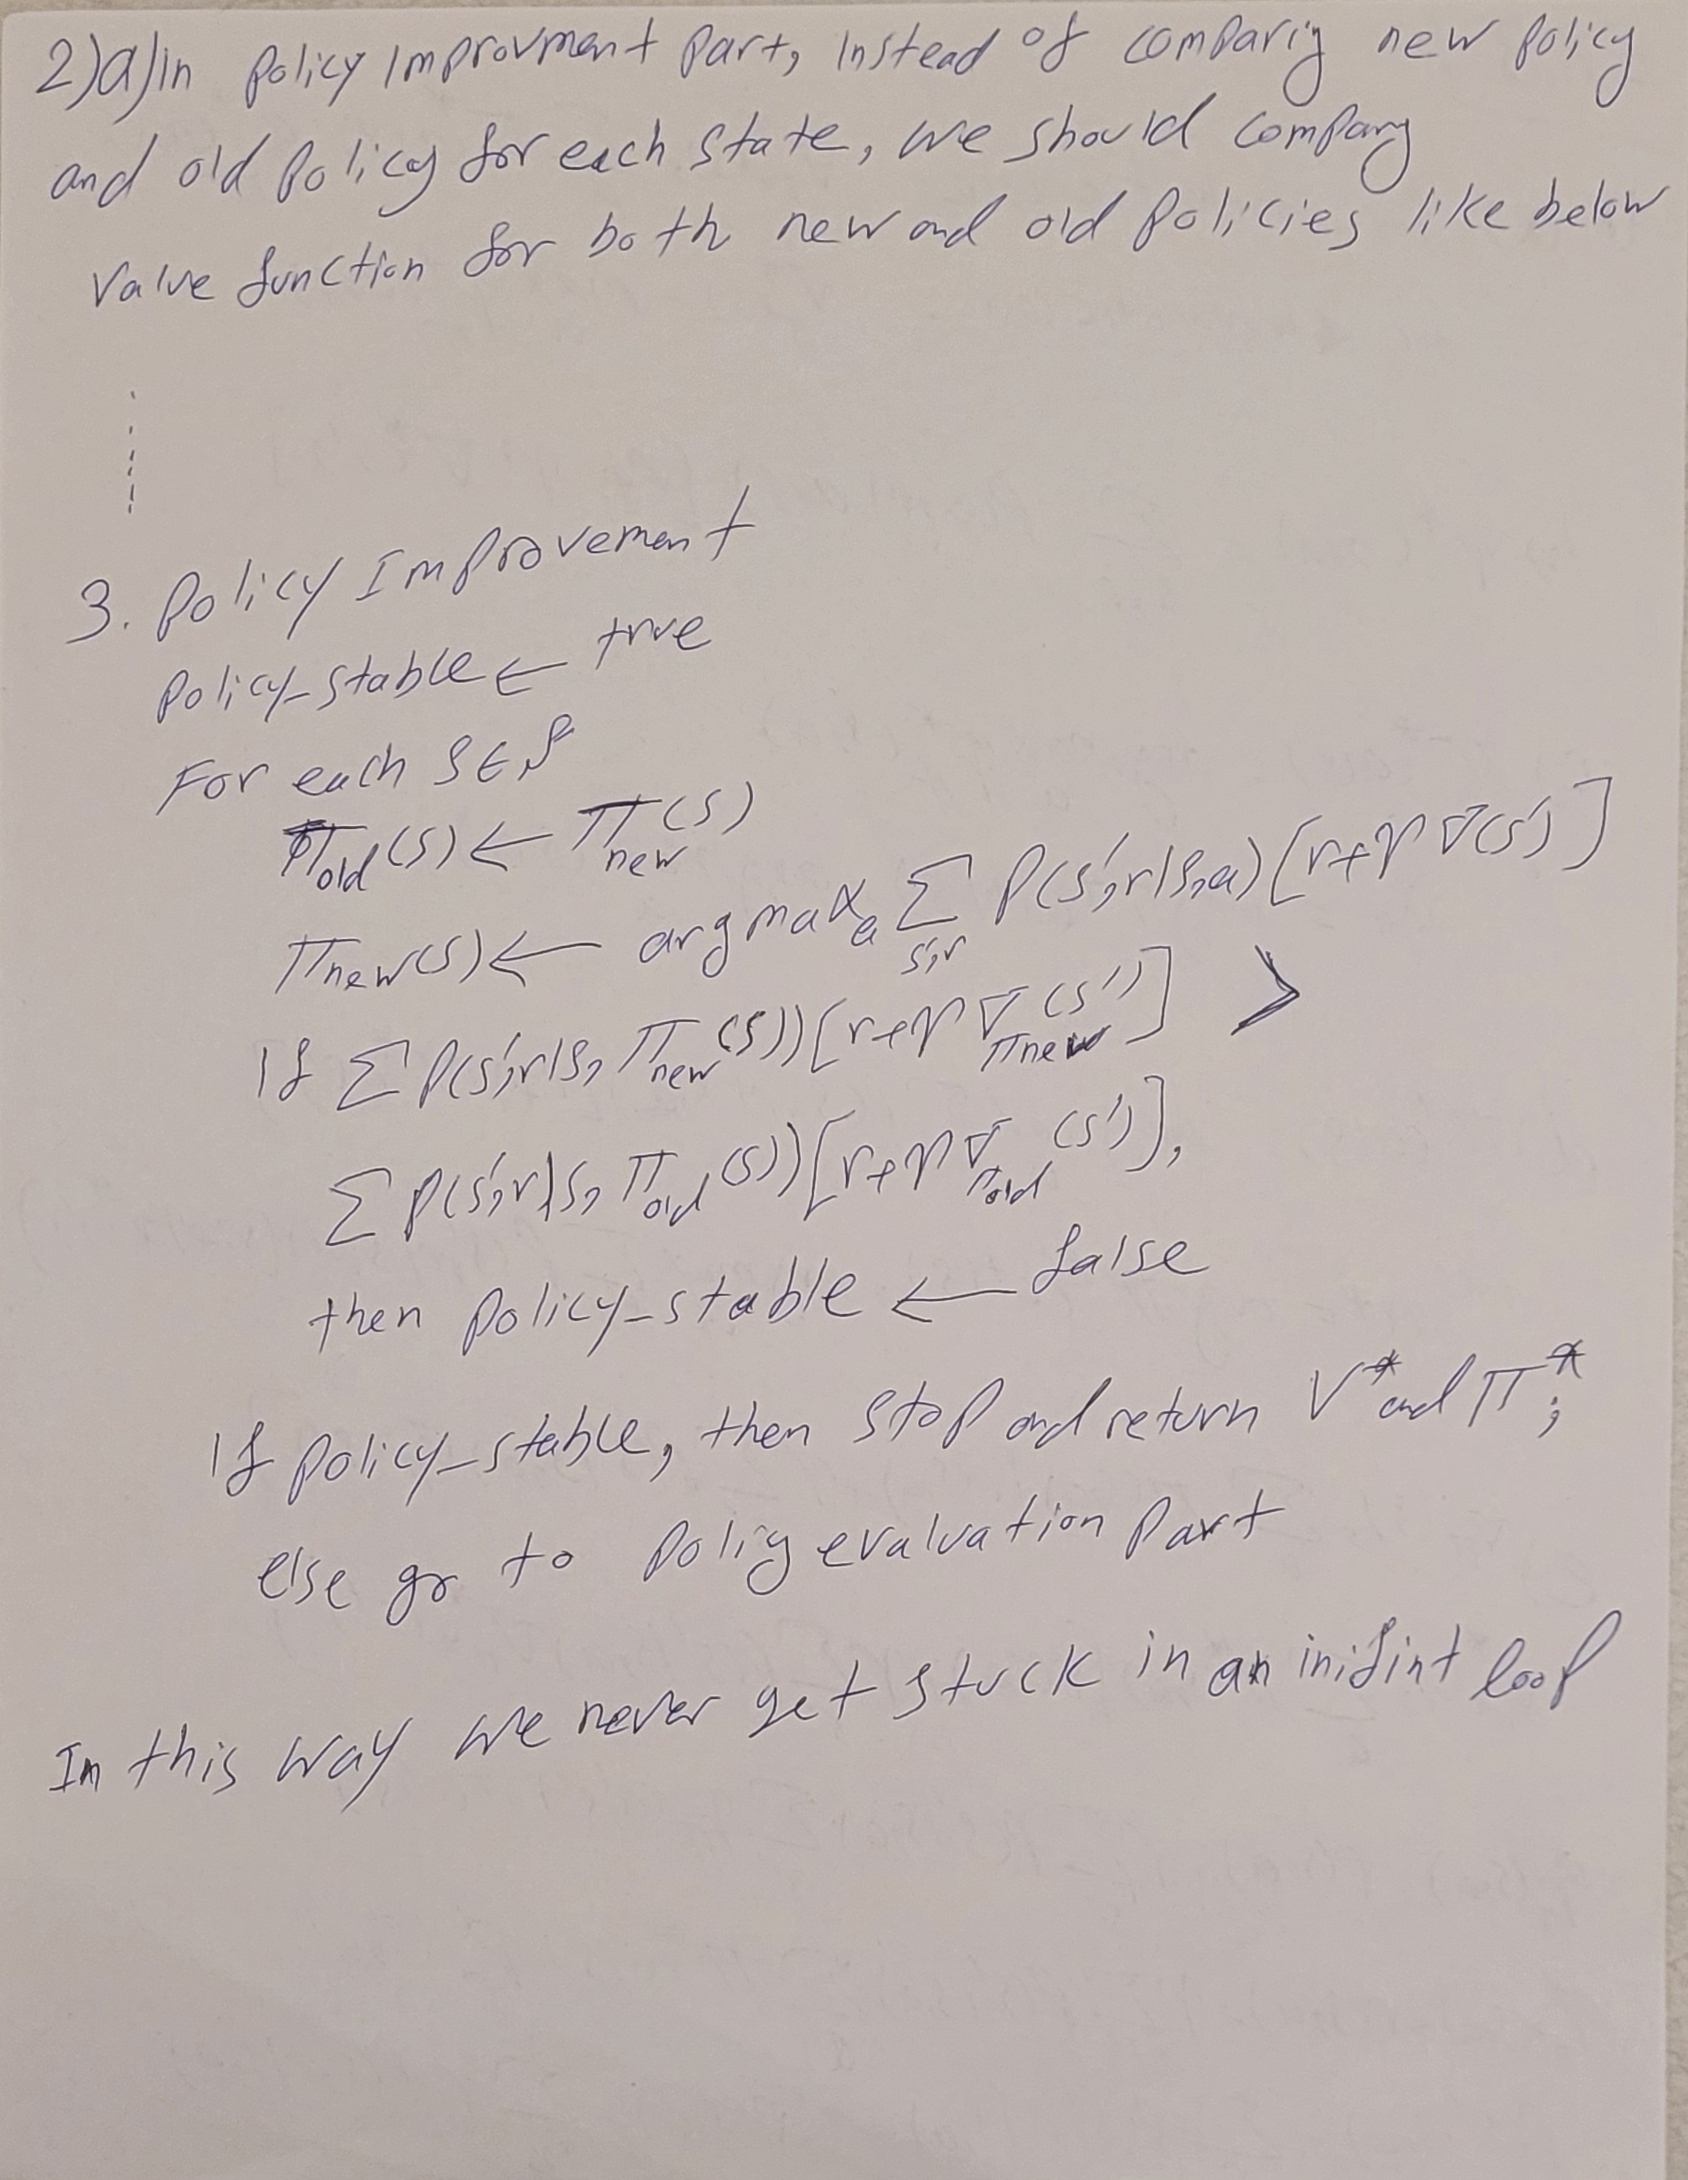 2)a) in policy improvment part, instead of comparig new policy
and old policy for each state, we should compary
value function for both new and old policies like below
3. policy Improvement
policy_stable ← true
For each s ∈ S
π_old(s) ← π_new(s)
π_new(s) ← argmax_a Σ_{s',r} P(s',r|s,a)[r+γV(s')]
If Σ P(s',r|s, π_new(s))[r+γV_{π_new}(s')] >
Σ P(s',r|s, π_old(s))[r+γV_{π_old}(s')],
then policy_stable ← false
If policy_stable, then stop and return V* and π*;
else go to policy evaluation part
In this way we never get stuck in an inifint loop